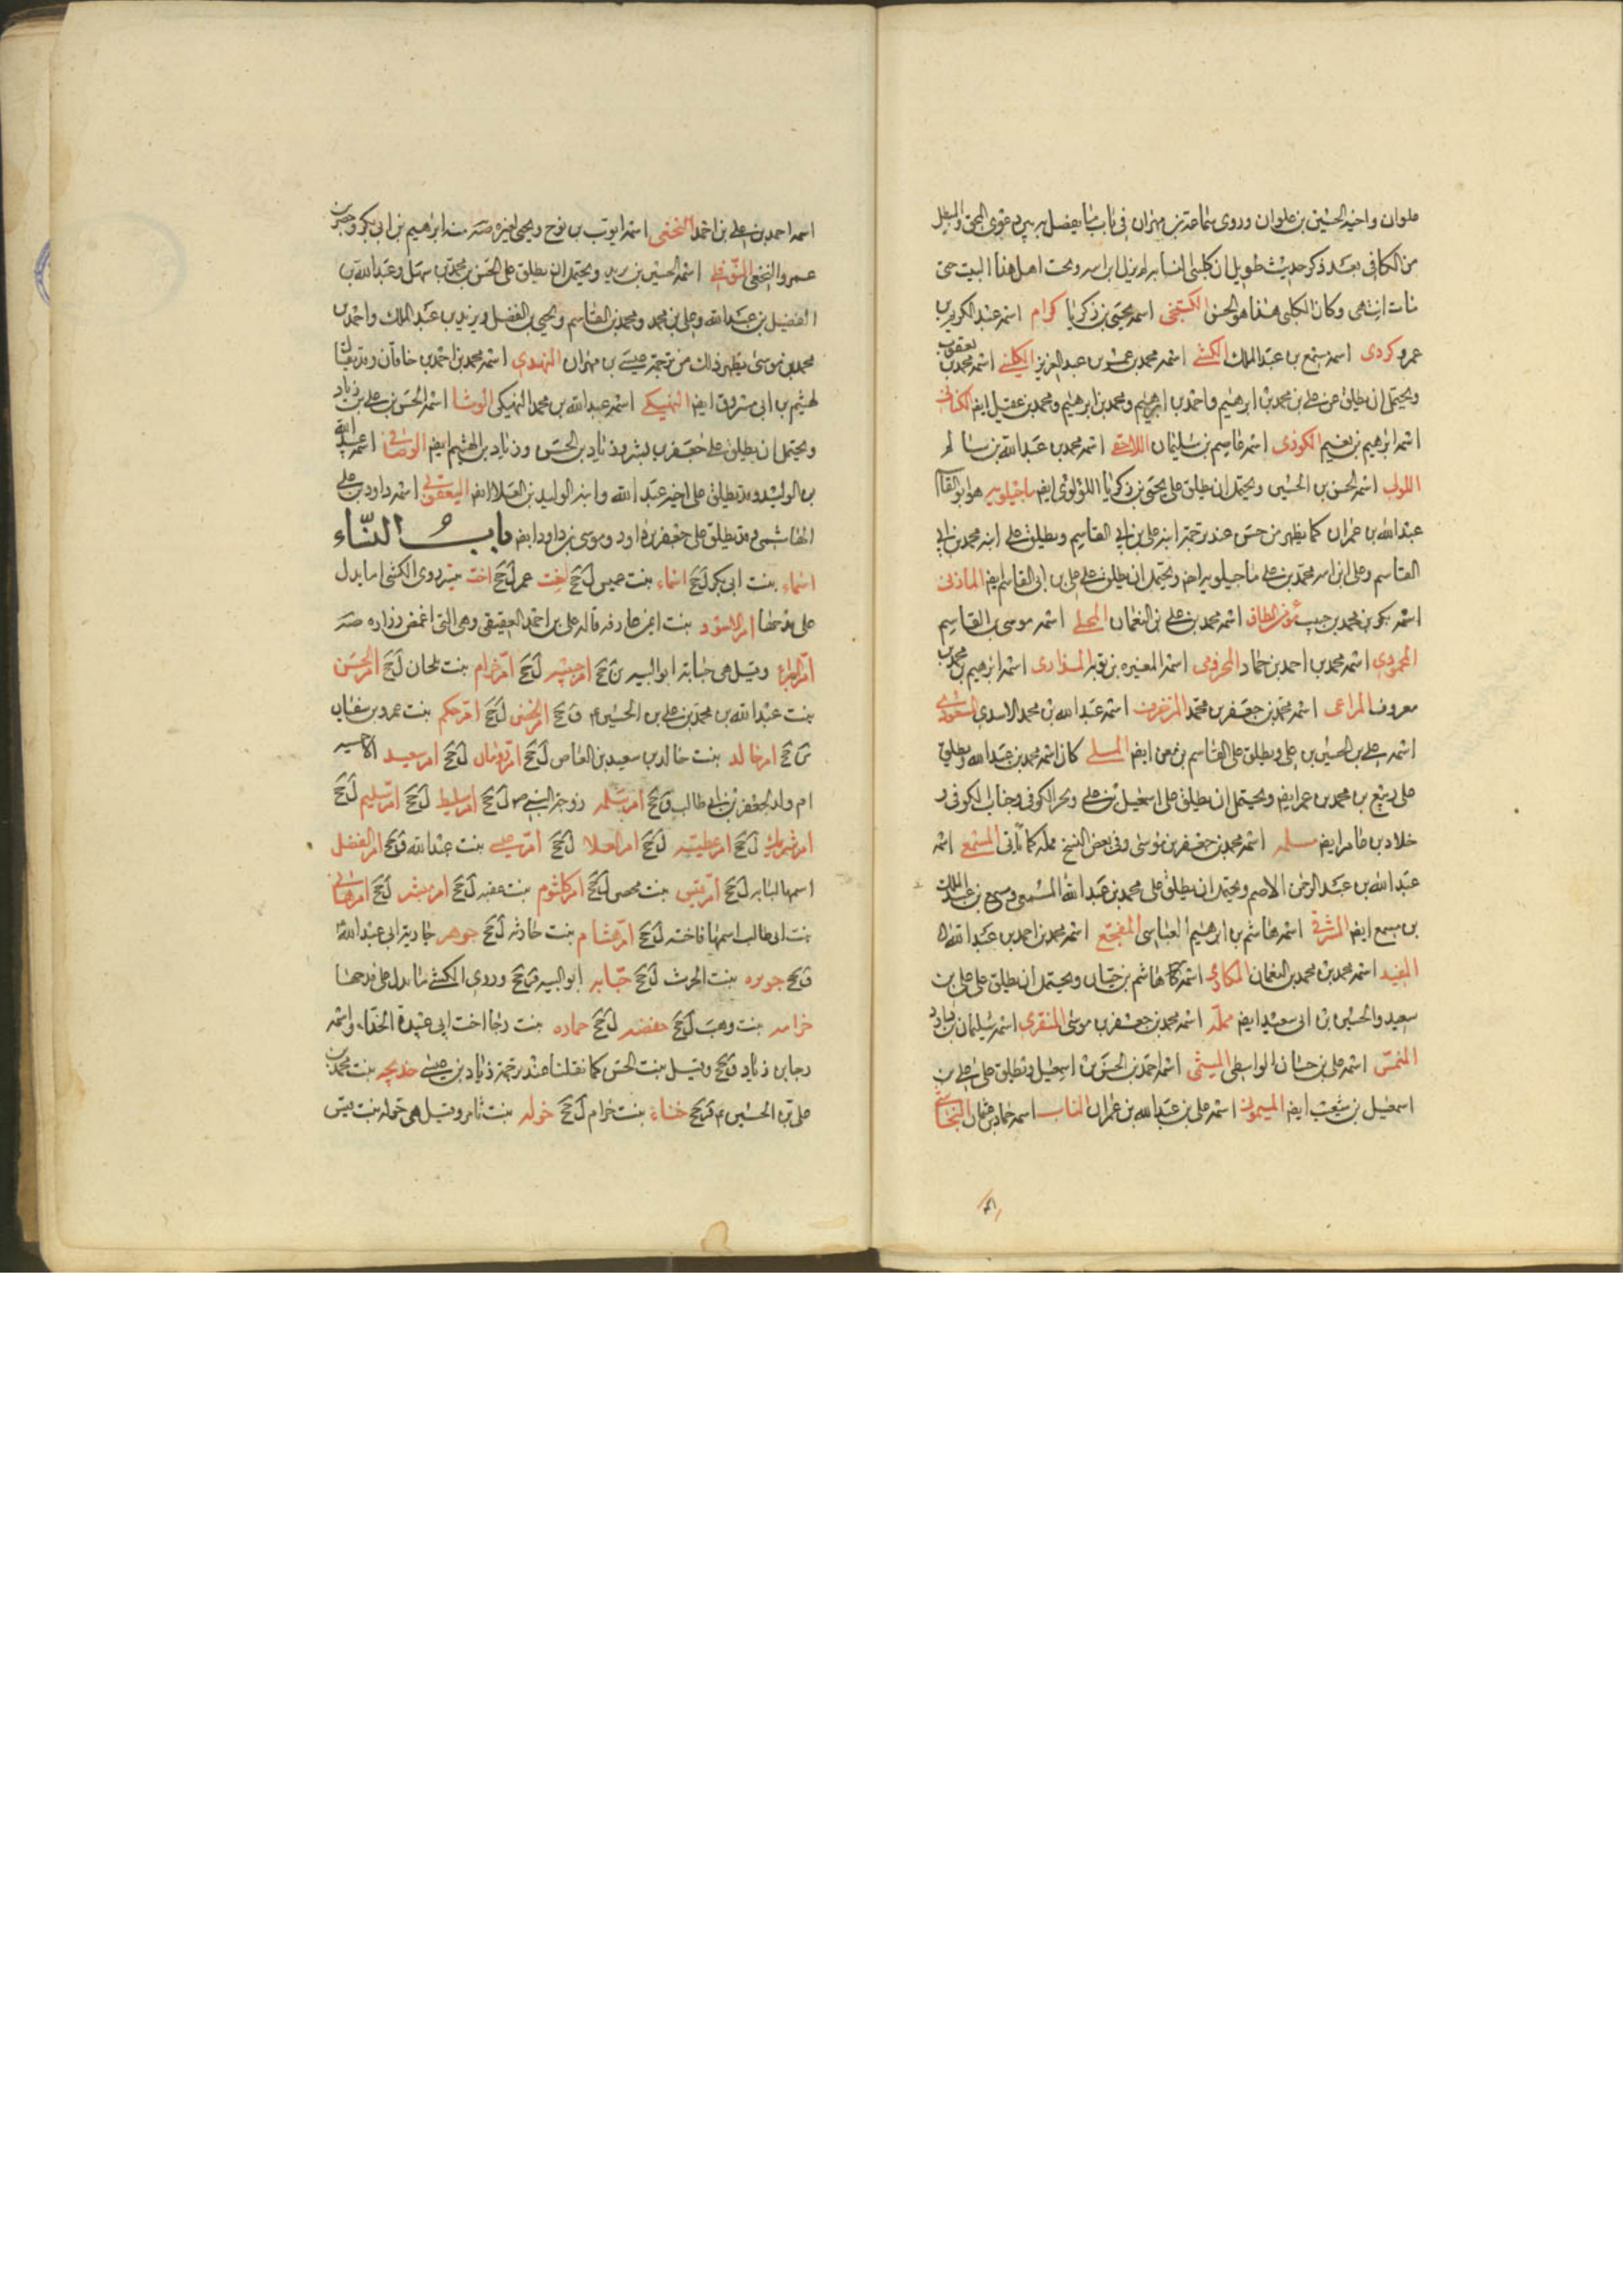 علوان واخيه الحسين بن علوان وروى سماعة بن مهران في باب ما يفصل به بين دعوى المحق والمبطل
من الكافي بعد ذكر حديث طويل ان كلبى النسابة لم يزل يحب اهل هذا البيت حتى
مات انتهى وكان الكلبى هذا هو الحسن الكشنجى اسمه يحيى بن زكريا كرام اسمه عبد الكريم بن
عمرو كردى اسمه مسمع بن عبد الملك الكشى اسمه محمد بن عمر بن عبد العزيز الكلينى اسمه محمد بن يعقوب
ويحتمل ان يطلق على بن محمد بن ابرهيم واحمد بن ابرهيم ومحمد بن ابرهيم ومحمد بن عقيل ايض الكنانى
اسمه ابرهيم بن نعيم الكوذى اسمه قاسم بن سليمان اللاحقى اسمه محمد بن عبد الله بن سالم
اللولؤى اسمه الحسن بن الحسين ويحتمل ان يطلق على يحيى بن زكريا اللؤلؤى ايض ماجيلويه هو ابو القاسم
عبد الله بن عمران كما يظهر من جش عند ترجمة ابنه على بن ابى القاسم ويطلق على ابنه محمد بن ابى
القاسم وعلى ابن ابنه محمد بن على ماجيلويه ايض ويحتمل ان يطلق على على بن ابى القاسم ايض المازنى
اسمه بكر بن محمد بن حبيب مؤمن الطاق اسمه محمد بن على بن النعمان المجلى اسمه موسى بن القاسم
المحمودى اسمه محمد بن احمد بن حماد المخزومى اسمه المغيره بن توبه المذارى اسمه ابرهيم بن محمد بن
معروف المراغى اسمه محمد بن جعفر بن محمد المزخرف اسمه عبد الله بن محمد الاسدى المسعودى
اسمه على بن الحسين بن على ويطلق على القاسم بن معن ايض المسلى كان اسمه محمد بن عبد الله ويطلق
على ربيع بن محمد بن عمر ايض ويحتمل ان يطلق على اسمعيل بن على وبحر الكوفى وجناب الكوفى و
خلاد بن عامر ايض مسلمه اسمه محمد بن جعفر بن موسى وفى بعض النسخ مملة كما يأتى المسمعى اسمه
عبد الله بن عبد الرحمن الاصم ويحتمل ان يطلق على محمد بن عبد الله المسمعى ومسمع بن عبد الملك
بن مسمع ايض المشرقى اسمه هاشم بن ابرهيم العباسى المفجع اسمه محمد بن احمد بن عبد الله
المفيد اسمه محمد بن محمد بن النعمان المكارى اسمه هاشم بن حيان ويحتمل ان يطلق على على بن
سعيد والحسين بن ابى سعيد ايض مملة اسمه محمد بن جعفر بن موسى المنقرى اسمه سليمان بن داود
المنمس اسمه على بن حسان الواسطى الميثمى اسمه احمد بن الحسن بن اسمعيل ويطلق على على بن
اسمعيل بن شعيب ايض الميمونى اسمه على بن عبد الله بن عمران الناب اسمه حماد بن عثمان النجاشى
اسمه احمد بن على بن احمد النخعى اسمه ايوب بن نوح ويجئ لغيره منه ابرهيم بن ابى بكر وحسن
عمرو النخعى النوفلى اسمه الحسين بن يزيد ويحتمل ان يطلق على الحسن بن محمد بن سهل وعبد الله بن
الفضل بن عبد الله وعلى بن محمد ومحمد بن القاسم ويحيى بن الفضل ويزيد بن عبد الملك واحمد بن
محمد بن موسى يظهر ذلك من ترجمة عيسى بن مهران النهدى اسمه محمد بن احمد بن خاقان وقد يقال
لهيثم بن ابى مسروق ايض النهيكى اسمه عبد الله بن محمد النهيكى الوشا اسمه الحسن بن على بن زياد
ويحتمل ان يطلق على جعفر بن بشير وزياد بن الحسن وزياد بن الهيثم ايض الوصافى اسمه عبيد الله
بن الوليد وقد يطلق على اخيه عبد الله وابنه الوليد بن العلا ايض اليعقوبى اسمه داود بن على
الهاشمى وقد يطلق على جعفر بن داود وموسى بن داود ايض باب النساء
اسماء بنت ابى بكر ل جخ اسماء بنت عميس ل جخ اخت عمر ل جخ اخت ميسر روى الكشى ما يدل
على مدحها ام الاسود بنت اعين عارفه قاله على بن احمد العقيقى وهى التى اغمضت زراره صه
ام البراء وقيل هى حبابة الوالبيه ين جخ ام حبيبه ل جخ ام حرام بنت ملحان ل جخ ام الحسن
بنت عبد الله بن محمد بن على بن الحسين ع ق جخ ام الحسن ل جخ ام حكيم بنت عمرو بن سفيان
ين جخ ام خالد بنت خالد بن سعيد بن العاص ل جخ ام رومان ل جخ ام سعيد الاحمسيه
ام ولد لجعفر بن ابى طالب ق جخ ام سلمه زوجة النبى ص ل جخ ام سليط ل جخ ام سليم ل جخ
ام شريك ل جخ ام عطيه ل جخ ام العلا ل جخ ام عيسى بنت عبد الله ق جخ ام الفضل
اسمها لبابه ل جخ ام قيس بنت محصن ل جخ ام كلثوم بنت عقبه ل جخ ام مبشر ل جخ ام هانى
بنت ابى طالب اسمها فاخته ل جخ ام هشام بنت حارثه ل جخ جوهر جارية ابى عبد الله
ق جخ جويره بنت الحرث ل جخ حبابه الوالبيه قر جخ وروى الكشى ما يدل على مدحها
خرامه بنت وهب ل جخ حفصه ل جخ حماده بنت رجا اخت ابى عبيدة الحذاء واسمه
رجا بن زياد ق جخ وقيل بنت الحسن كما نقلنا عند ترجمة زياد بن عيسى خديجه بنت محمد بن
على بن الحسين ع قر جخ خنساء بنت خرام ل جخ خوله بنت ثامر وقيل هى خوله بنت قيس